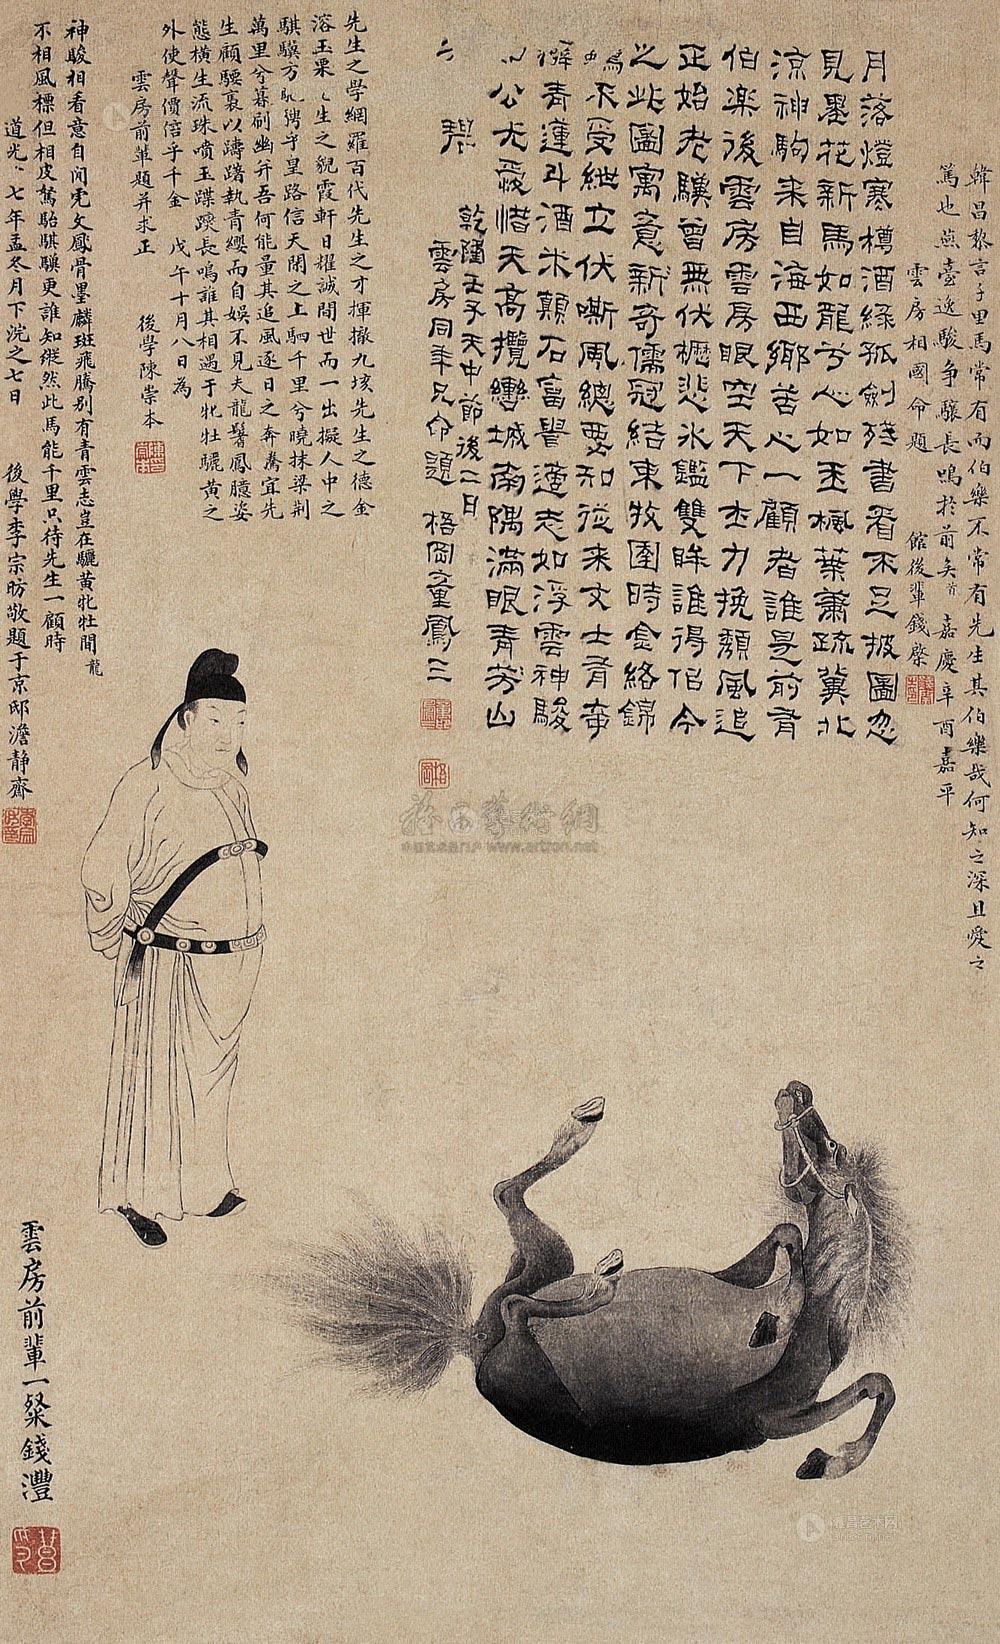 韓昌黎言千里馬常有而伯樂不常有先生其伯樂哉何知之深且愛之
篤也燕臺逸駿争驤長鳴於前矣嘉慶辛酉嘉平
雲房相國命題
館後輩錢棨
月落燈寒樽酒綠孤劍殘書看不足披圖忽
見墨花新馬如龍兮心如玉楓葉蕭疏冀北
涼神駒来自海西鄉苦心一顧者誰是前有
伯樂後雲房雲房眼空天下士力挽頹風追
正始老驥曾無伏櫪悲冰鑑雙眸誰得侣今
之此圖寓意新奇儒冠結束牧圉時金絡錦
不受紲立伏嘶風總要知從来文士有奇
癖青蓮斗酒米顛石富譽適志如浮雲神駿
公尤愛惜天高攬轡城南隅滿眼青芳山
乾隆壬子天中節後二日
雲房同年兄命題
梧岡童鳳三
先生之學網羅百代先生之才揮撤九垓先生之德金
溶玉栗生之貌霞軒日耀誠間世而一出擬人中之
騏驥方騁乎皇路信天閑之上駟千里兮曉抹梁荆
萬里兮暮刷幽并吾何能量其追風逐日之奔騰宜先
生顧騕褭以躊躇執青纓而自娱不見夫龍鬐鳳臆姿
態橫生流珠噴玉蹀躞長鳴誰其相遇于牝牡驪黃之
外使聲價倍乎千金
戊午十月八日為
雲房前輩題并求正
後學陳崇本
神駿相看意自閒虎文鳳骨墨麟斑飛騰别有青雲志豈在驪黃牝牡間龍
不相風標但相皮駑駘騏驥更誰知縱然此馬能千里只待先生一顧時
道光七年孟冬月下浣之七日
後學李宗昉敬題于京邸澹静齋
雲房前輩一粲錢灃
www.artron.net